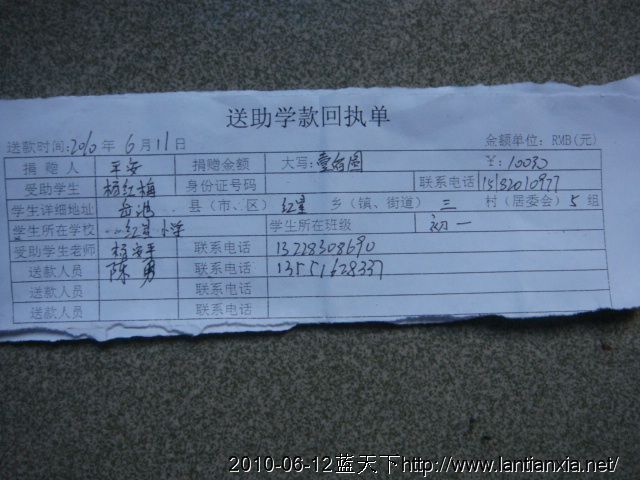 送助学款回执单
送款时间:2010年 6月11日 金额单位: RMB(元)
捐赠人 平安 捐赠金额 大写: ¥:
受助学生 杨红梅 身份证号码 联系电话
学生详细地址 县(市、区) 红星 乡(镇、街道) 三 村(居委会) 5 组
学生所在学校 红星小学 学生所在班级 初一
受助学生老师 杨安平 联系电话 13228308690
送款人员 陈勇 联系电话 13551628337
送款人员 联系电话
送款人员 联系电话
2010-06-12蓝天下http://www.lantianxia.net/